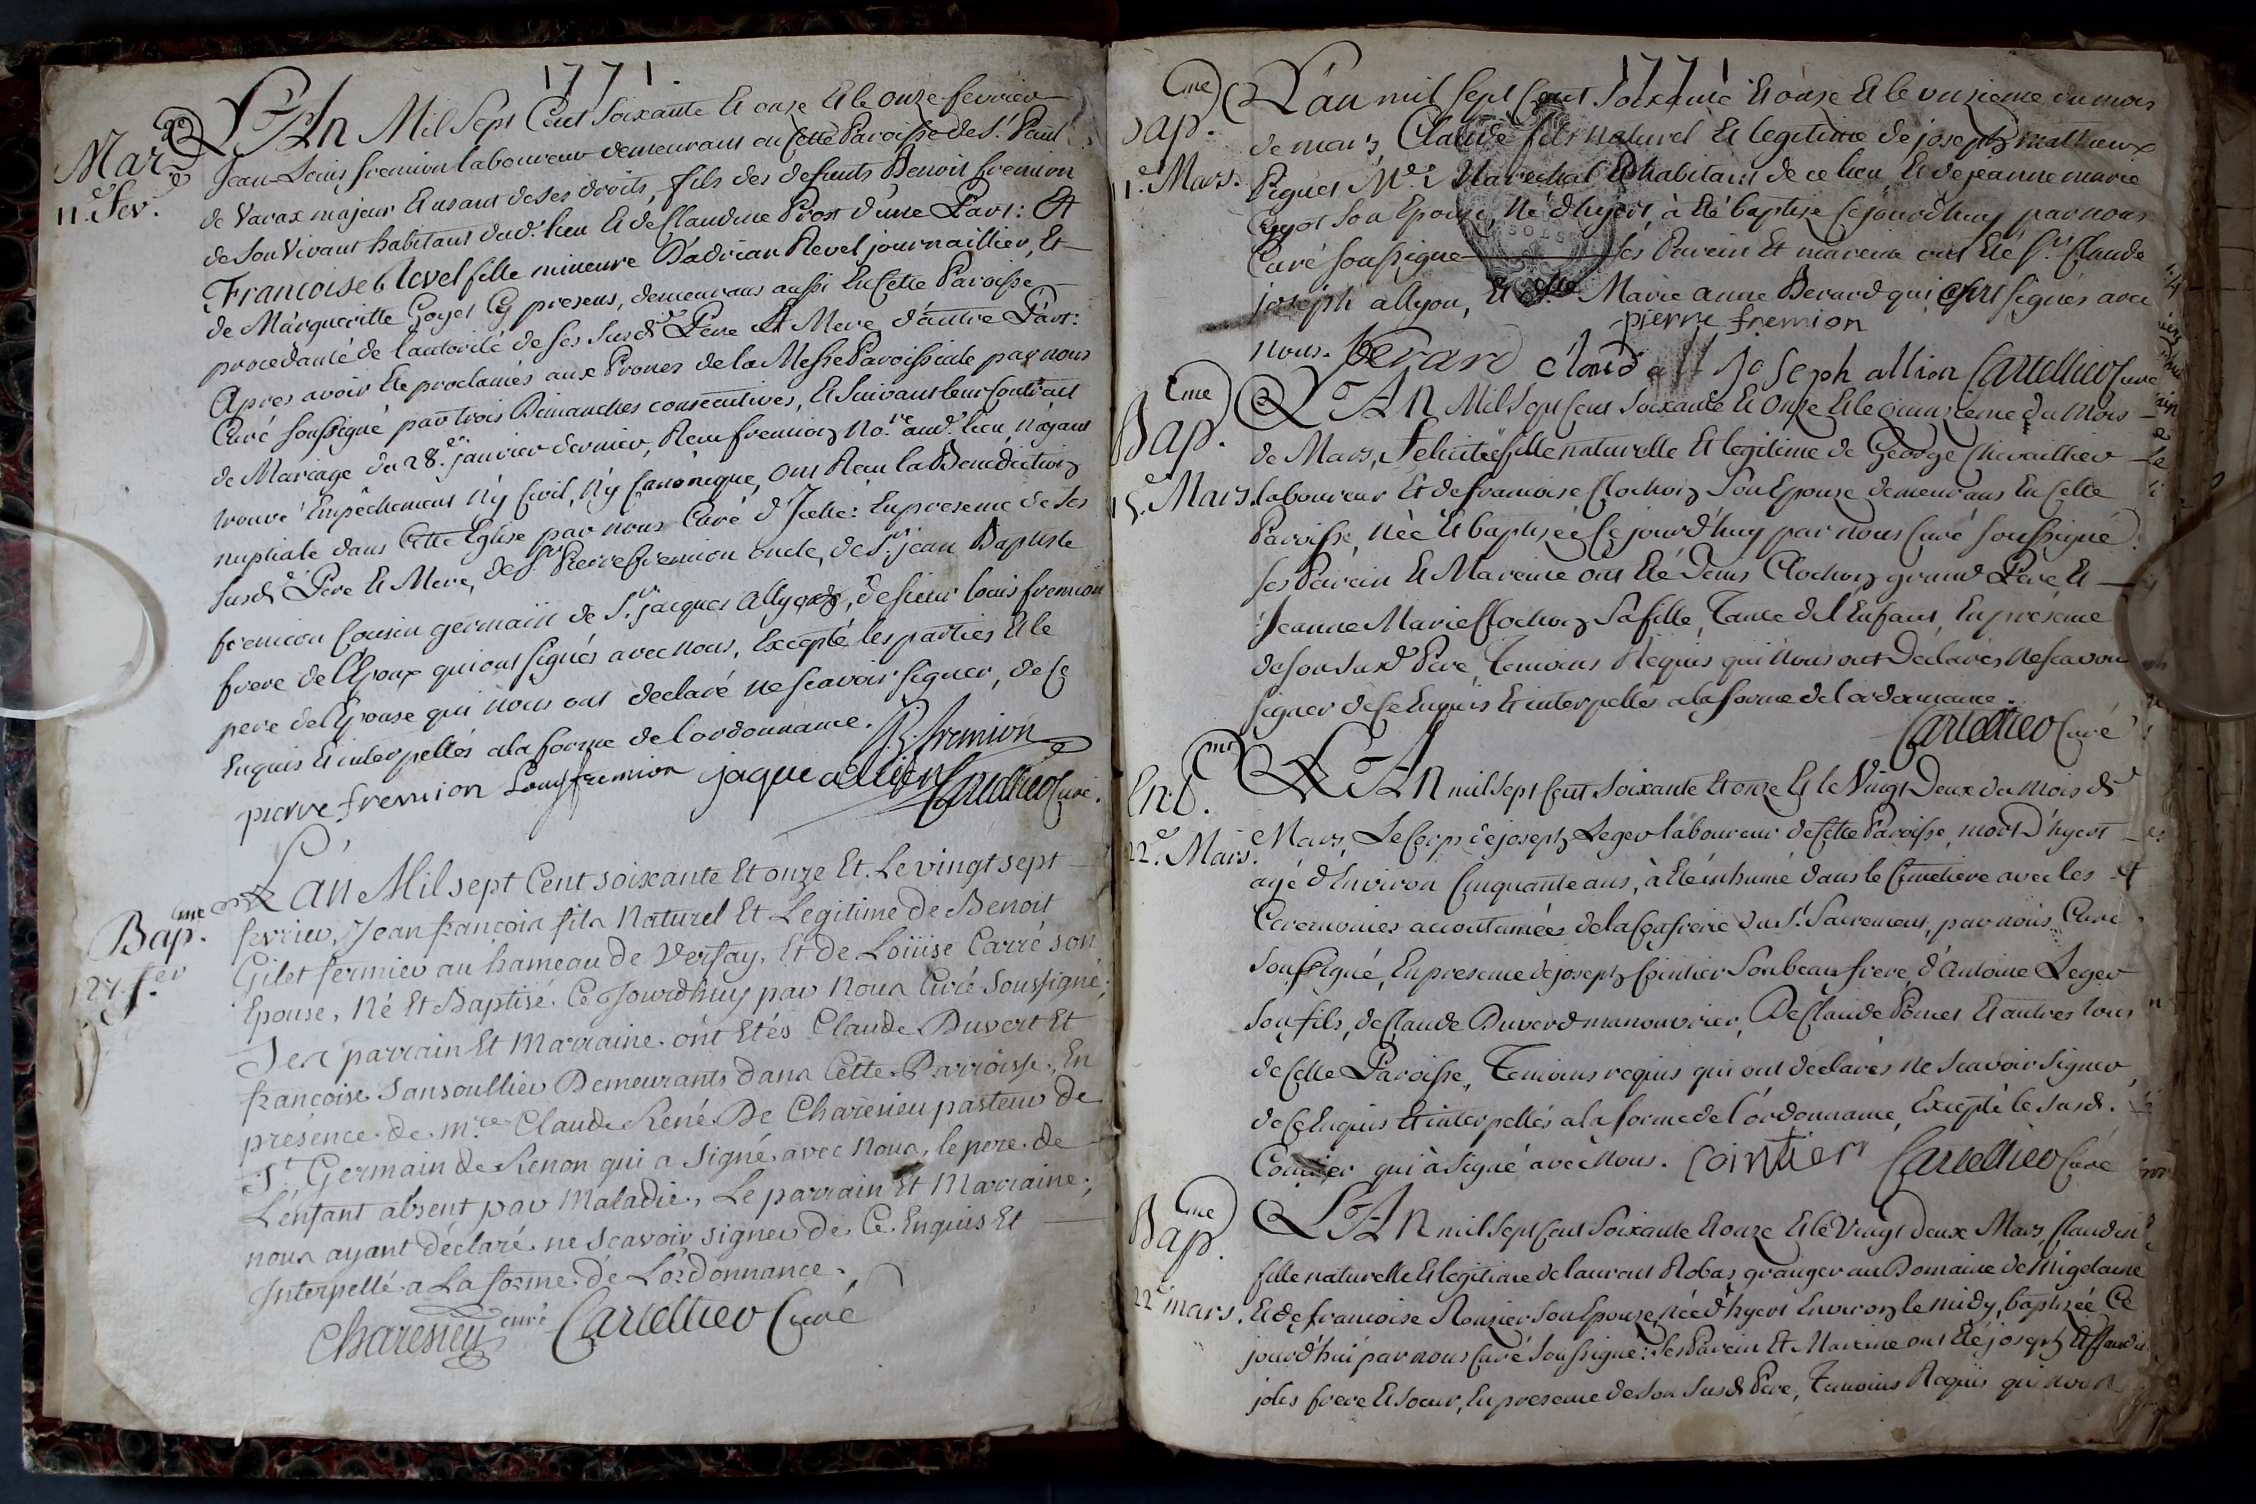 1771.
Mar.ge
11.e Fev.
L'An Mil Sept Cent Soixante Et onze Et le onze fevrier
Jean-Louis fremion laboureur demeurant en Cette Paroisse de St. Paul
de Varax majeur Et usant de ses droits, fils des defunts Benoit fremion
de Son Vivant habitant dud. lieu Et de Claudine Prost d'une Part: Et
Francoise Revel fille mineure D'adrian Revel journaillier, Et
de Margueritte Goyet Cy presens, demeurans aussi En Cette Paroisse
procedante de l'autorité de ses Susd. Pere Et Mere d'autre Part:
Apres avoir Eté proclamés aux Prones de la Messe Paroissiale par nous
Curé soussigné par trois Dimanches consecutives, Et Suivant leur Contract
de Mariage du 28.e janvier dernier, Recu fremion No.re aud. lieu, N'ayant
trouvé Empêchement N'y Civil, N'y Canonique, ont Recu la Benediction
nuptiale dans Cette Eglise par nous Curé d'Icelle: En presence de Ses
Susd. Pere Et Mere, de Sr. Pierre fremion oncle, de Sr. jean Baptiste
fremion Cousin germain de Sr. jacques Allyon, de sieur louis fremion
frere de l'Epoux qui ont signés avec nous, Excepté les parties Et le
pere de l'Epouse qui nous ont declaré ne scavoir signer, de Ce
Enquis Et interpellés a la forme de l'ordonnance. J.B. fremion
pierre fremion Louis fremion jaque allion Cartellier Curé.
Bap.me
27. f.er
L'an Mil sept Cent soixante Et onze Et Le vingt sept
fevrier, Jean francois fils Naturel Et Legitime de Benoit
Gilet fermier au hameau de Versay, Et de Loüise Carré son
Epouse, Né Et Baptisé Ce Jourd'huy par Nous Curé Soussigné;
Ses parrain Et Marraine ont Etés Claude Duvert Et
francoise Sansoullier Demeurants dans Cette Parroisse, En
présence de m.re Claude René De Charesieu pasteur de
St. Germain de Renon qui a signé avec Nous, le pere de
L'enfant absent par Maladie, Le parrain Et Marraine
nous ayant déclaré ne scavoir signer de Ce Enquis Et
Interpellé a La forme de L'ordonnance.
Charesieu curé Cartellier Curé
1771
Bap.me
11.e Mars.
L'an mil sept Cent Soixante Et onze Et le onzieme du mois
de mars, Claude fils naturel Et legitime de joseph mathieux
Piguet M.e Marechal Et habitant de ce lieu, Et de jeanne marie
Goyot Son Epouse, Né d'hyert, à Eté baptisé Ce jourd'huy par nous
Curé Soussigné Ses Parein Et mareine ont Eté Sr. Claude
joseph allyon, Et Marie anne Berard qui ont signés avec
pierre fremion
nous. berard Joseph allion Cartellier Curé
Bap.me
15.e Mars.
L'An Mil Sept Cent Soixante Et Onze Et le quinzieme du Mois
de Mars, Felicité fille naturelle Et legitime de George Chevaillier
laboureur Et de francoise Clochon Son Epouse demeurans En Cette
Paroisse, Née Et baptisée Ce jourd'huy par nous Curé Soussigné.
Ses Parein Et Mareine ont Eté Denis Clochon grand Pere, Et
Jeanne Marie Clochon Sa fille, Tante de l'Enfant, En presence
de son Susd. Pere, Temoins Requis qui nous ont declarés ne Scavoir
signer de Ce Enquis Et interpellés a la forme de l'ordonnance.
Cartellier Curé
En.t
22.e Mars.
L'An mil sept Cent Soixante Et onze Et le Vingt Deux du Mois de
Mars, Le Corp de joseph Leger laboureur de Cette Paroisse, mort D'hyert
agé d'Environ Cinquante ans, à Eté inhumé dans le Cimetiere avec les
Ceremonies accoutumées de la Confrerie du St. Sacrement, par nous Curé
Soussigné, En presence de joseph Cointier Son beau frere, d'Antoine Leger
Son fils, de Claude Duverd manouvrier, De Claude Pomet Et autres tous
de Cette Paroisse, Temoins requis qui ont declarés ne Scavoir Signer
de Ce Enquis Et interpellés a la forme de l'ordonnance, Excepté le Susd.
Cointier qui à signé avec Nous. Cointier Cartellier Curé
Bap.me
22.e mars.
L'An mil Sept Cent Soixante Et onze Et le Vingt deux Mars, Claudine
fille naturelle Et legitime de laurent Robas granger au Domaine de Migelaine
Et de francoise Ronzier Son Epouse, née d'hyert Environ le midy, baptizée Ce
jourd'hui par nous Curé Soussigné: Ses Parein Et Mareine ont Eté joseph Et Claudine
joles frere Et soeur, En presence de Son Susd. Pere, Temoins Requis qui nous